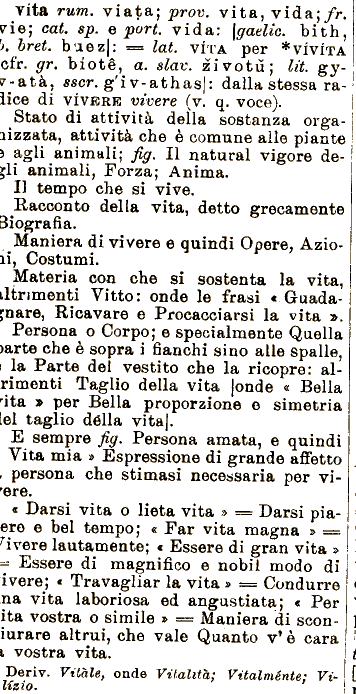 vita rum. viaţa; prov. vita, vida; fr.
vie; cat. sp. e port. vida: [gaelic. bith,
b. bret. buez]: = lat. VÍTA per *VIVÍTA
cfr. gr. biotê, a. slav. životŭ; lit. gy-
v-atà, sscr. g'iv-athas]: dalla stessa ra-
dice di VÍVERE vivere (v. q. voce).
Stato di attività della sostanza orga-
nizzata, attività che è comune alle piante
e agli animali; fig. Il natural vigore de-
gli animali, Forza; Anima.
Il tempo che si vive.
Racconto della vita, detto grecamente
Biografia.
Maniera di vivere e quindi Opere, Azio-
ni, Costumi.
Materia con che si sostenta la vita,
altrimenti Vitto: onde le frasi « Guada-
gnare, Ricavare e Procacciarsi la vita ».
Persona o Corpo; e specialmente Quella
parte che è sopra i fianchi sino alle spalle,
e la Parte del vestito che la ricopre: al-
trimenti Taglio della vita [onde « Bella
vita » per Bella proporzione e simetria
del taglio délla vita].
E sempre fig. Persona amata, e quindi
Vita mia » Espressione di grande affetto
a persona che stimasi necessaria per vi-
vere.
« Darsi vita o lieta vita » = Darsi pia-
cere e bel tempo; « Far vita magna » =
Vivere lautamente; « Essere di gran vita »
= Essere di magnifico e nobil modo di
vivere; « Travagliar la vita » = Condurre
una vita laboriosa ed angustiata; « Per
vita vostra o simile » = Maniera di scon-
giurare altrui, che vale Quanto v'è cara
la vostra vita.
Deriv. Vitàle, onde Vitalità; Vitalménte; Vi-
talízio.